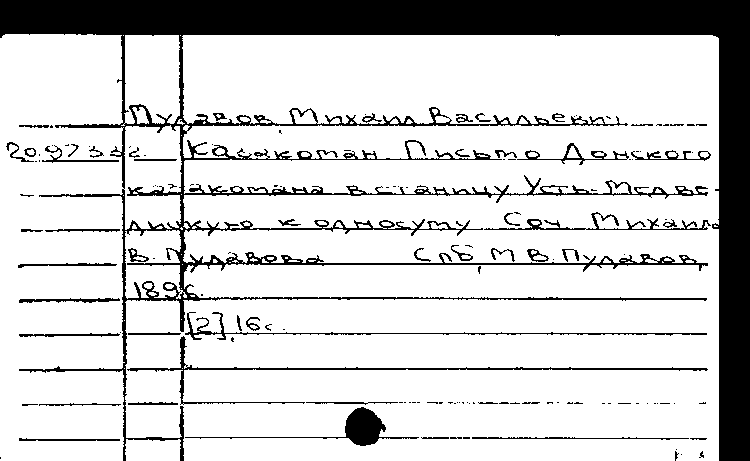 Пудавов, Михаил Васильевич
20.97.3.32. Казакоман. Письмо Донского
казакомана в станицу Усть-Медве-
дицкую к односуму Соч. Михаила
В. Пудавова Спб, М В. Пудавов,
1896
[2], 16с.